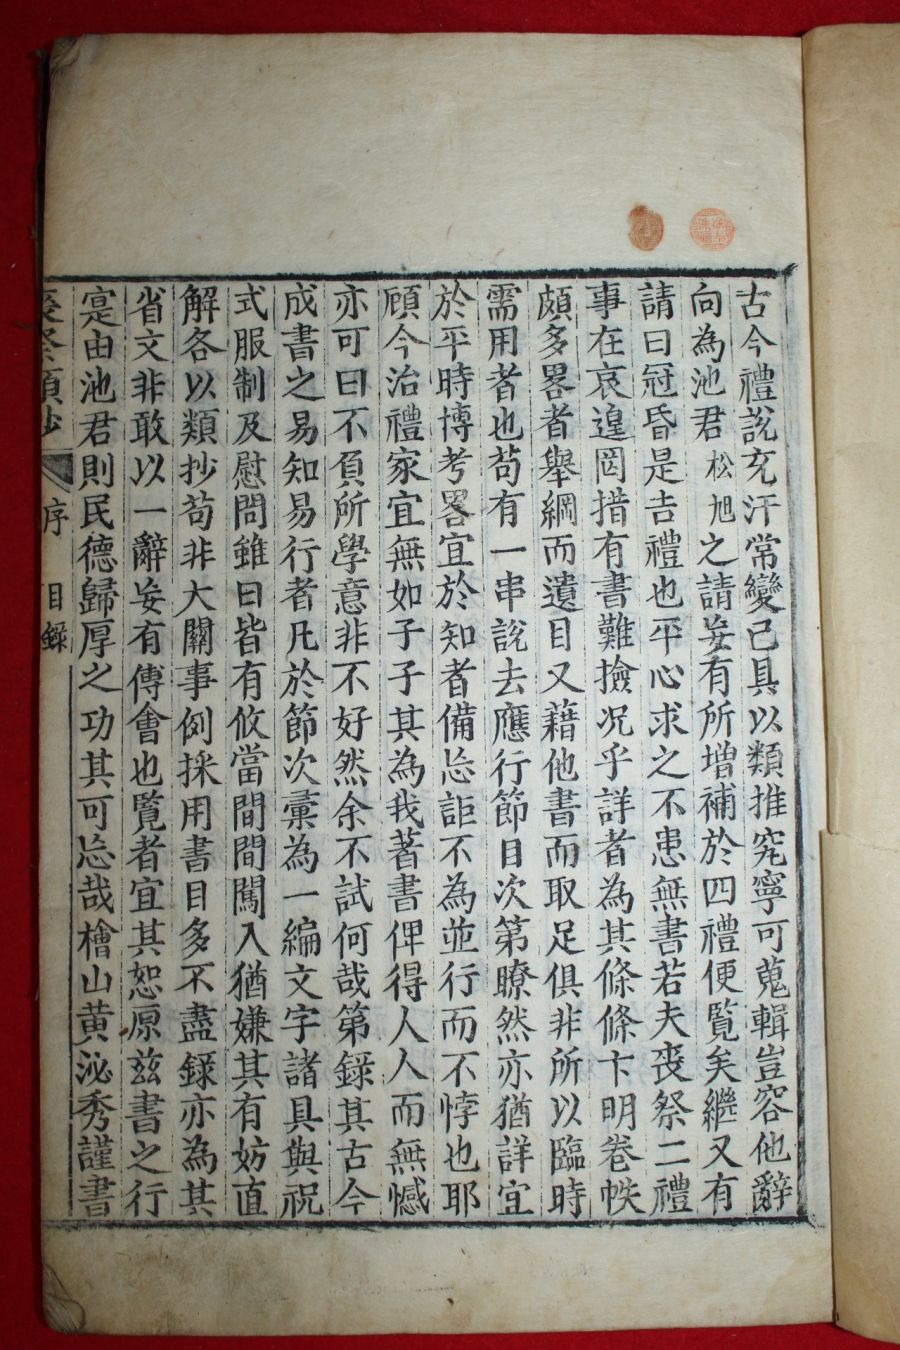 古今禮說充汗常變已具以類推究寧可蒐輯豈容他辭
向為池君松旭之請妄有所增補於四禮便覧矣繼又有
請曰冠昏是吉禮也平心求之不患無書若夫喪祭二禮
事在哀遑罔措有書難撿况乎詳者為其條條卞明卷帙
頗多畧者舉綱而遺目又藉他書而取足俱非所以臨時
需用者也苟有一串說去應行節目次第瞭然亦猶詳宜
於平時博考畧宜於知者備忘詎不為並行而不悖也耶
顧今治禮家宜無如子子其為我著書俾得人人而無憾
亦可曰不負所學意非不好然余不試何哉第錄其古今
成書之易知易行者凡於節次彙為一編文字諸具與祝
式服制及慰問雖曰皆有攸當間間闖入猶嫌其有妨直
解各以類抄苟非大關事例採用書目多不盡錄亦為其
省文非敢以一辭妄有傅會也覧者宜其恕原兹書之行
寔由池君則民德歸厚之功其可忘哉檜山黄泌秀謹書
喪祭類抄 序 目錄